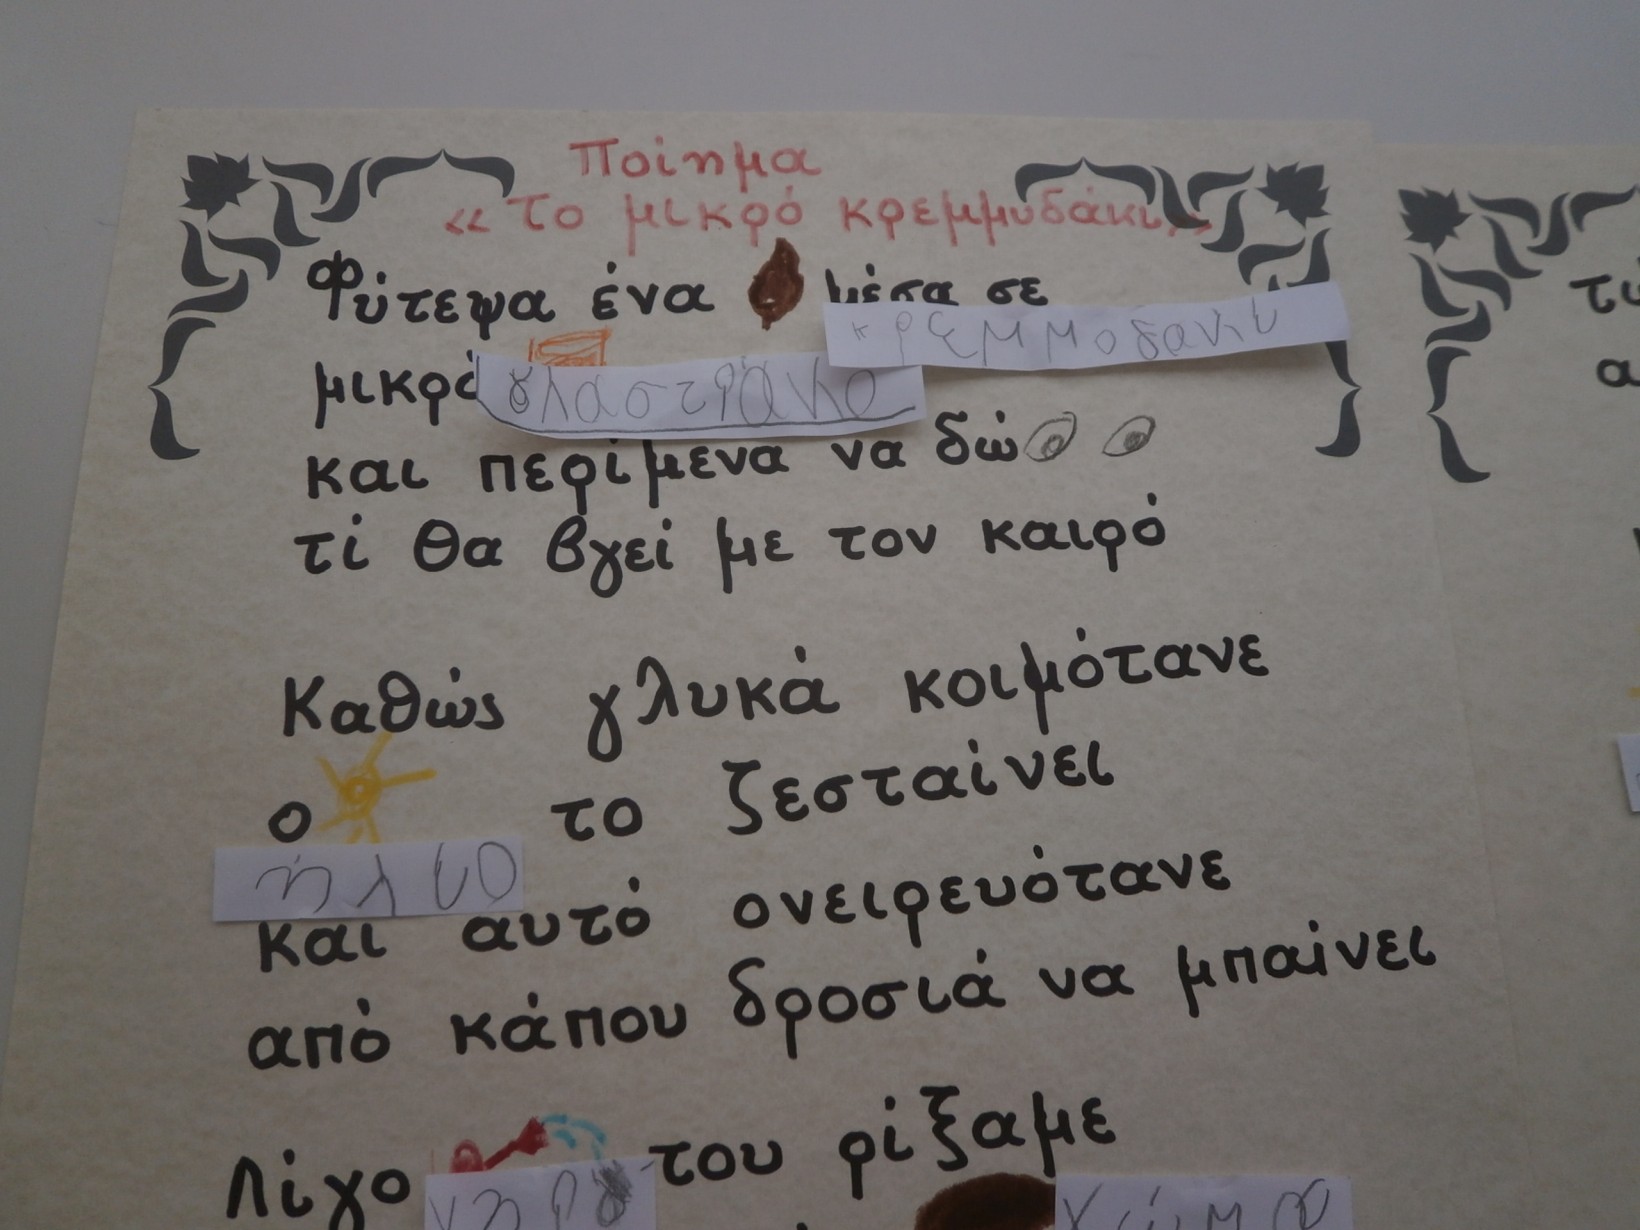 Ποίημα
«το μικρό κρεμμυδάκι»
Φύτεψα ένα μέσα σε
κρεμμοδακι
μικρό γλαστράκι
και περίμενα να δώ
τί θα βγεί με τον καιρό
Καθώς γλυκά κοιμότανε
ο το ζεσταίνει
ήλιο
και αυτό ονειρευότανε
από κάπου δροσιά να μπαίνει
Λίγο νερό του ρίξαμε
χώμα